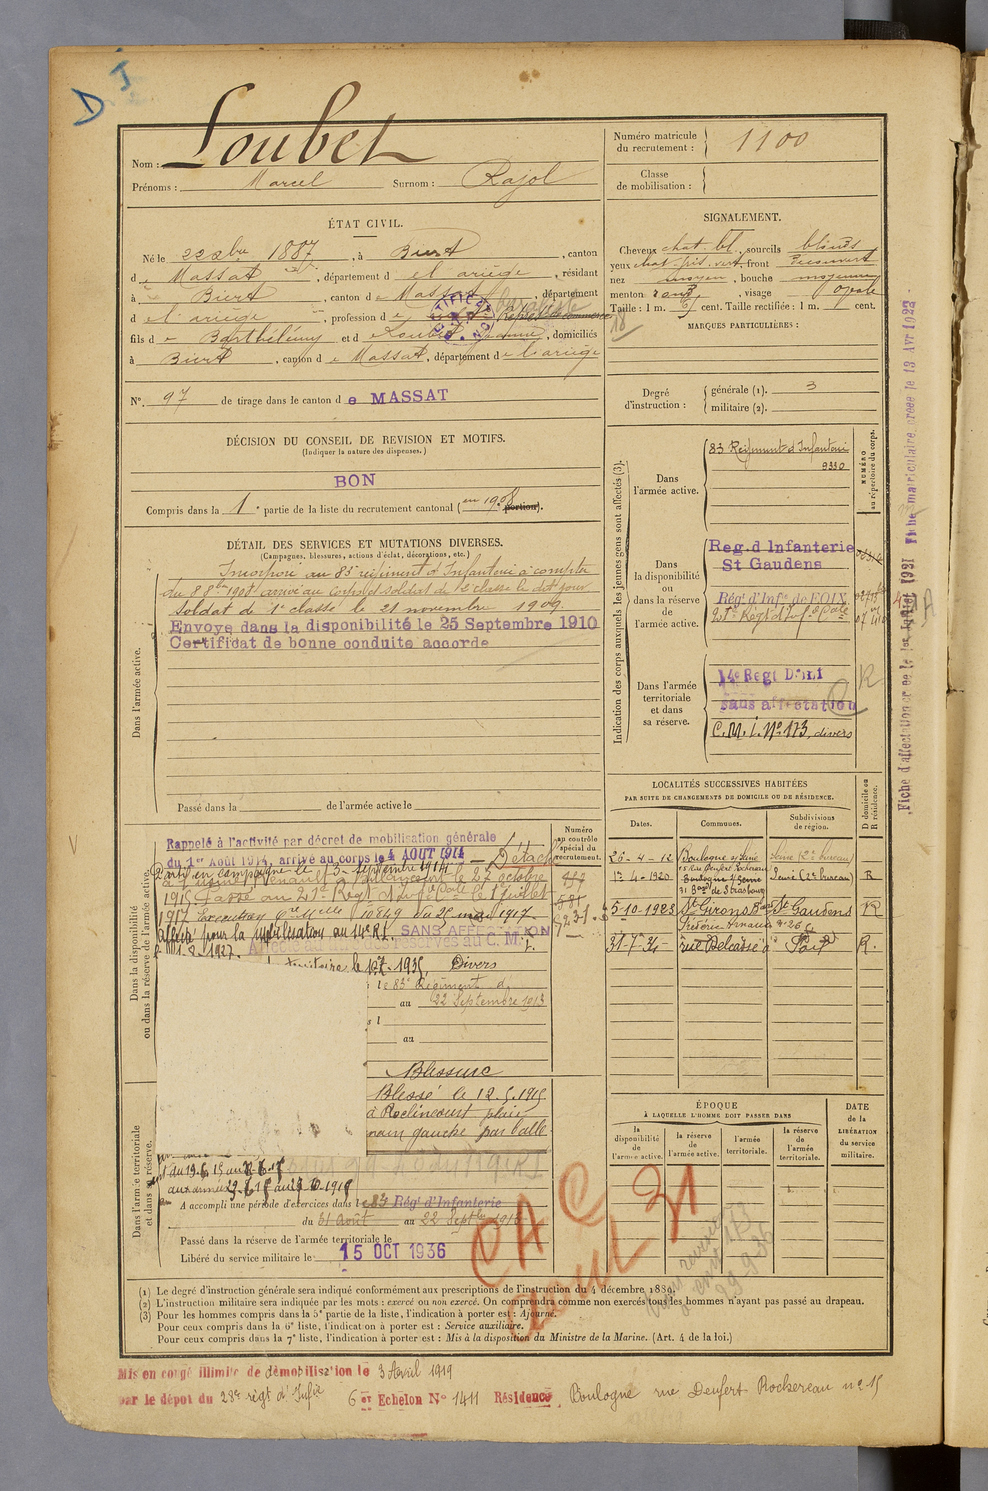 D I
Nom : Loubet
Prénoms : Marcel Surnom : Rajol
Numéro matricule du recrutement : 1100
Classe de mobilisation :
ÉTAT CIVIL.
Né le 22 xbre 1887, à Biert, canton
d e Massat, département d el ariège, résidant
à Biert, canton d e Massat, département
d el ariège, profession d e
fils d e Barthélémy et d e Loubet Jeanne, domiciliés
à Biert, canton d e Massat, département d e l'ariège
N° 97 de tirage dans le canton d e MASSAT
DÉCISION DU CONSEIL DE REVISION ET MOTIFS.
(Indiquer la nature des dispenses.)
BON
Compris dans la 1e partie de la liste du recrutement cantonal (en 1908 portion).
SIGNALEMENT.
Cheveux chat. bl., sourcils blonds
yeux chat. gris vert, front découvert
nez moyen, bouche moyenne
menton rond, visage ovale
Taille : 1 m. cent. Taille rectifiée : 1 m. cent.
MARQUES PARTICULIÈRES :
Degré d'instruction : générale (1). 3
militaire (2).
DÉTAIL DES SERVICES ET MUTATIONS DIVERSES.
(Campagnes, blessures, actions d'éclat, décorations, etc.)
Dans l'armée active.
Incorporé au 83e régiment d'Infanterie à compter
du 8 8bre 1908, arrivé au corps et soldat de 2e classe le dit jour
Soldat de 1e classe le 21 novembre 1909.
Envoyé dans la disponibilité le 25 Septembre 1910
Certificat de bonne conduite accordé
Passé dans la de l'armée active le
Indication des corps auxquels les jeunes gens sont affectés (3).
NUMÉRO au répertoire du corps.
Dans l'armée active.
83 Régiment d'Infanterie
9330
Dans la disponibilité ou dans la réserve de l'armée active.
Reg. d Infanterie
St Gaudens
Rég. d'Infie de FOIX
21e Régt d'Inf. Cale
Dans l'armée territoriale et dans sa réserve.
14e Regt D'Inf
sans affectation
C.M.I. No 173, divers
R
Fiche d'affectation créée le 1er Juillet 1921 Fiche matriculaire créée le 13 Avr 1922
LOCALITÉS SUCCESSIVES HABITÉES
PAR SUITE DE CHANGEMENTS DE DOMICILE OU DE RÉSIDENCE.
Dates. Communes. Subdivisions de région. D domicile ou R résidence.
26-4-12 Boulogne s/ Seine Seine (2e bureau)
15 Rue Denfert Rochereau
1er-4-1920 Boulogne s/ Seine Seine (2e bureau) R
31 Bard de Strasbourg
5-10-1923 St Girons St Gaudens R
31-7-34 rue Delcassé à Foix R.
Dans la disponibilité ou dans la réserve de l'armée active.
Numéro au contrôle spécial du recrutement.
Rappelé à l'activité par décret de mobilisation générale
du 1er Août 1914, arrivé au corps le 4 AOUT 1914 — Détaché
Parti en campagne le 15 Septembre 1914
à l'usine Renault à Billancourt le 27 octobre
1915. Passé au 21e Régt d'Inf. Cale le 1er juillet
1917 Exécution Cre Mlle No 10849 du 25 mai 1917
Affecté pour la mobilisation au 14e R.I. SANS AFFECTATION
territoires le 1.7.1935, Divers
le 83e Régiment d'
au 22 Septembre 1913
au
Blessure
Blessé le 12.5.1915
à Roclincourt plaie
main gauche par balle
Dans l'armée territoriale et dans sa réserve.
aux armées
A accompli une période d'exercices dans le 83 Rég' d'Infanterie
du 31 août au 22 Septbre
Passé dans la réserve de l'armée territoriale le
Libéré du service militaire le 15 OCT 1936
CAC
août 31
ÉPOQUE
À LAQUELLE L'HOMME DOIT PASSER DANS
la disponibilité de l'armée active.
la réserve de l'armée active.
l'armée territoriale.
la réserve de l'armée territoriale.
DATE de la LIBÉRATION du service militaire.
(1) Le degré d'instruction générale sera indiqué conformément aux prescriptions de l'instruction du 4 décembre 1889.
(2) L'instruction militaire sera indiquée par les mots : exercé ou non exercé. On comprendra comme non exercés tous les hommes n'ayant pas passé au drapeau.
(3) Pour les hommes compris dans la 5e partie de la liste, l'indication à porter est : Ajourné.
Pour ceux compris dans la 6e liste, l'indication à porter est : Service auxiliaire.
Pour ceux compris dans la 7e liste, l'indication à porter est : Mis à la disposition du Ministre de la Marine. (Art. 4 de la loi.)
Mis en congé illimité de démobilisation le 3 Avril 1919
par le dépôt du 28e régt d'Infie 6 e Echelon No 1411 Résidence Boulogne rue Denfert Rochereau no 15